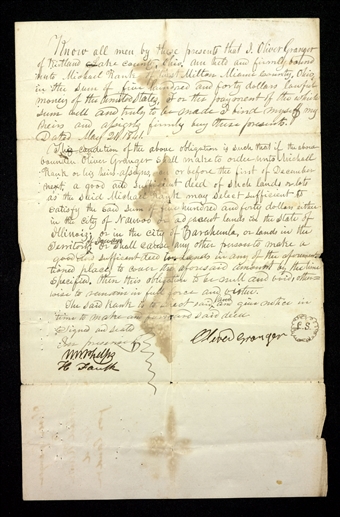 Know all men by these presents that I Oliver Granger
of Kirtland Lake county, Ohio, am held and firmly bound
unto Michael Rank of West Milton Miami County, Ohio
in the sum of five hundred and forty dollars lawful
money of the United States, for the payment of the which
sum well and truly to be made I bind myself my
heirs and assigns firmly by these presents.
Dated May 28 1841.
The condition of the above obligation is such that if the above
bounden Oliver Granger shall make or order unto Michael
Rank or his heirs assigns, on or before the first of December
next, a good and sufficient deed of such lands or lots
as the said Michael Rank may select sufficient to
satisfy the said sum five hundred and forty dollars either
in the City of Nauvoo or adjacent lands in the State of
Illinois; or in the city of Zarahemla, or lands in the
Territory of Iowa; or shall cause any other persons make a
good and sufficient deed for lands in any of the aforemen-
tioned places to cover the aforesaid amount by the time
specified, then this obligation to be null and void; other-
wise to remain in full force and virtue.
The said Rank is to select said land and give notice in
time to make out said deed
Signed and sealed
in presence of
W W Phelps
H
Oliver Granger